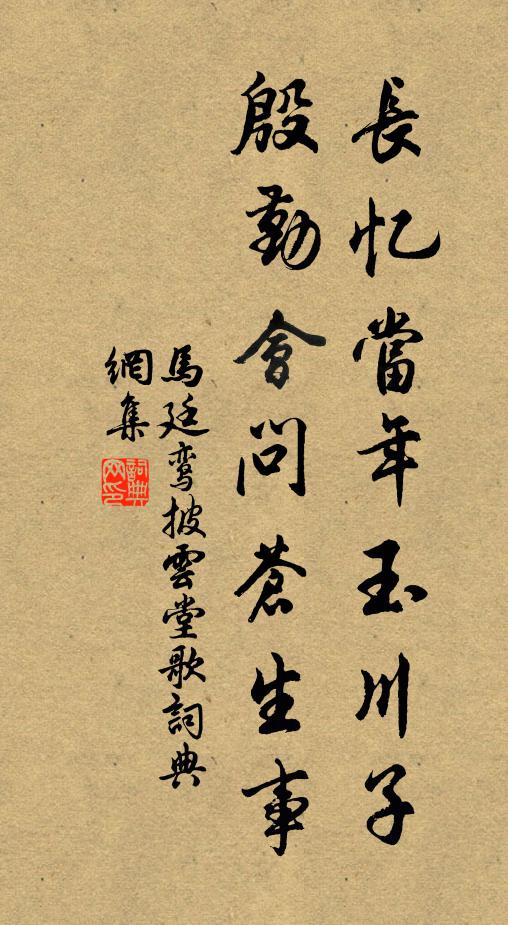 長忆當年玉川子
殷勤會問蒼生事
馬廷鸾披雲堂歌詞典
網集
詞典
网印